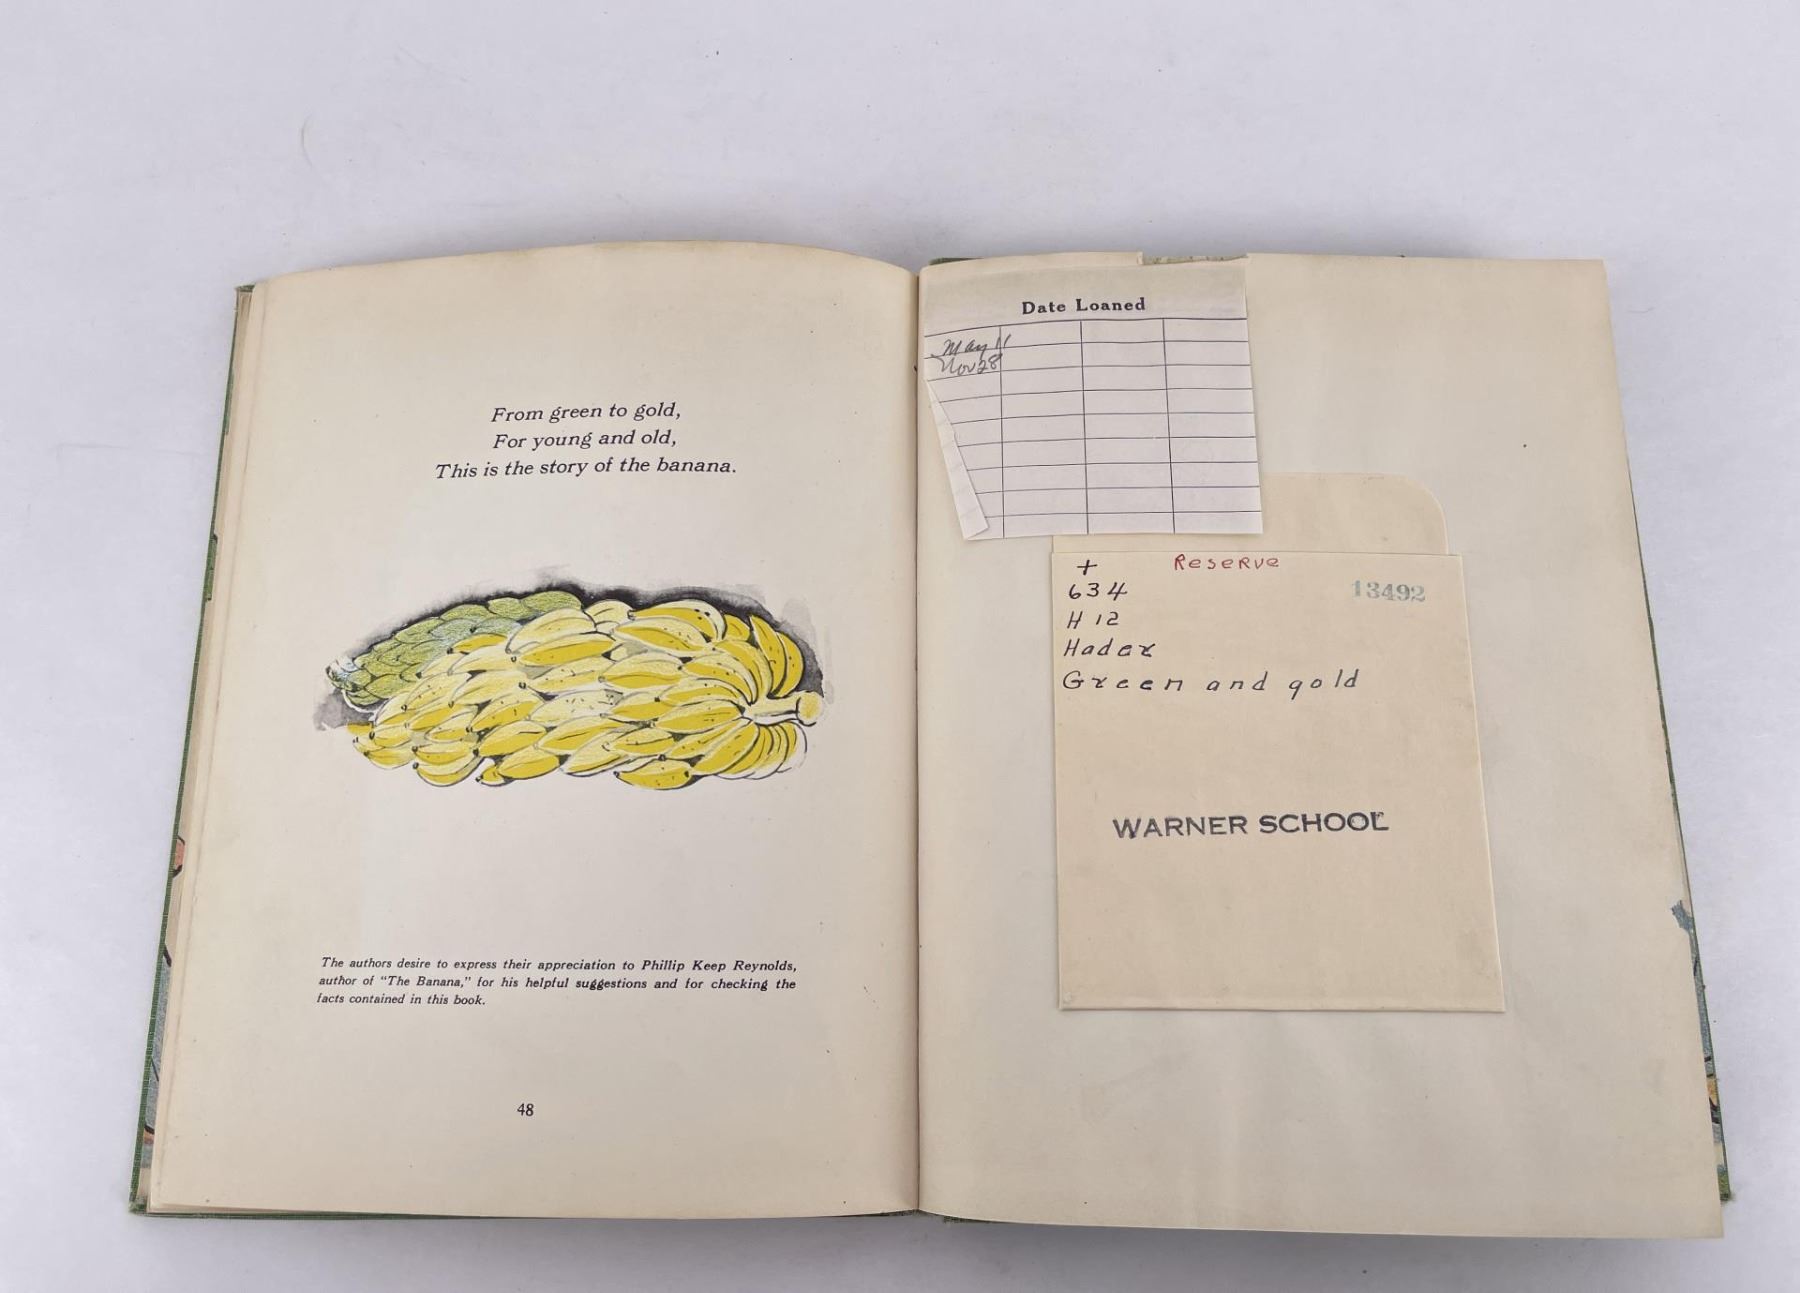 From green to gold,
For young and old,
This is the story of the banana.
The authors desire to express their appreciation to Phillip Keep Reynolds,
author of "The Banana," for his helpful suggestions and for checking the
facts contained in this book.
48
Date Loaned
May 11
Nov 28
+
Reserve
634
13492
H 12
Hader
Green and gold
WARNER SCHOOL